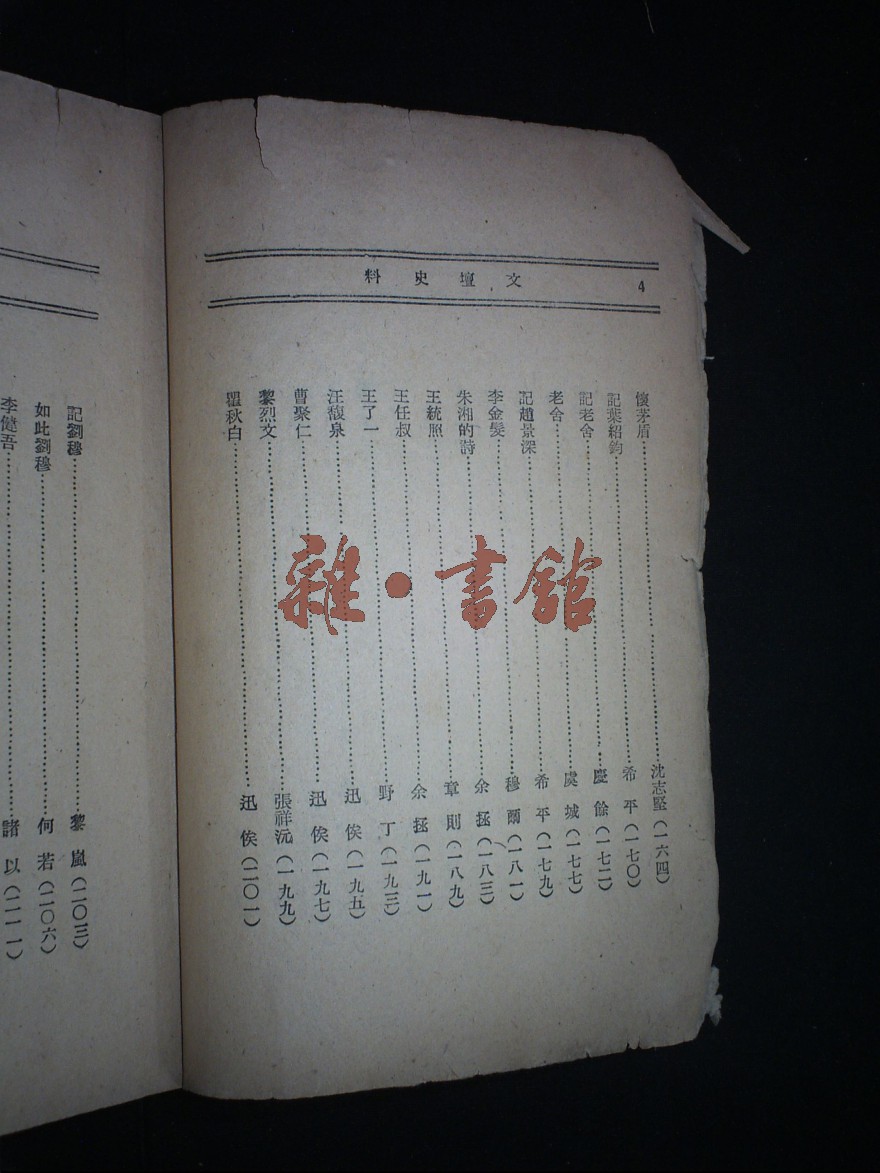 文壇史料 4
懷茅盾……沈志堅(一六四)
記葉紹鈞……希平(一七〇)
記老舍……慶餘(一七二)
老舍……虞城(一七七)
記趙景深……希平(一七九)
李金髮……穆爾(一八一)
朱湘的詩……余拯(一八三)
王統照……章則(一八九)
王任叔……余拯(一九一)
王了一……野丁(一九三)
汪馥泉……迅俟(一九五)
曹聚仁……迅俟(一九七)
黎烈文……張祥沅(一九九)
瞿秋白……迅俟(二〇一)
記劉穆……黎嵐(二〇三)
如此劉穆……何若(二〇六)
李健吾……諸以(二一一)
雜·書館